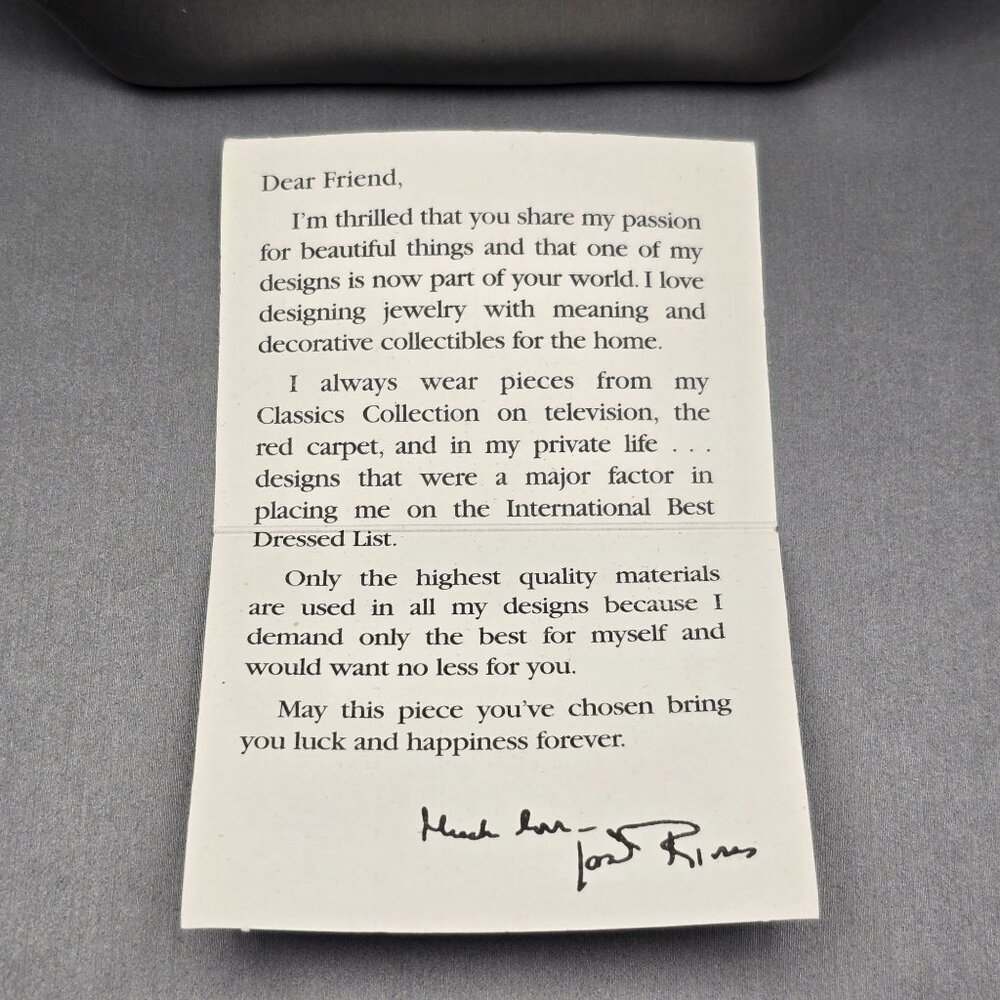 Dear Friend,
I'm thrilled that you share my passion
for beautiful things and that one of my
designs is now part of your world. I love
designing jewelry with meaning and
decorative collectibles for the home.
I always wear pieces from my
Classics Collection on television, the
red carpet, and in my private life . . .
designs that were a major factor in
placing me on the International Best
Dressed List.
Only the highest quality materials
are used in all my designs because I
demand only the best for myself and
would want no less for you.
May this piece you've chosen bring
you luck and happiness forever.
Much love –
Joan Rivers